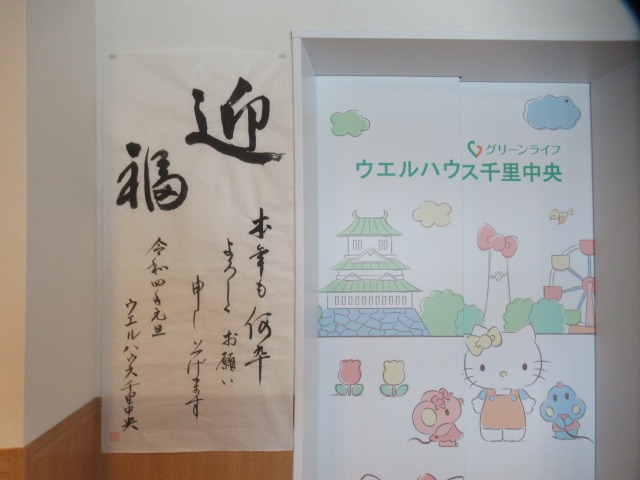 迎
福
本年も何卒
よろしくお願い
申し上げます
令和四年元旦
ウエルハウス千里中央
グリーンライフ
ウエルハウス千里中央